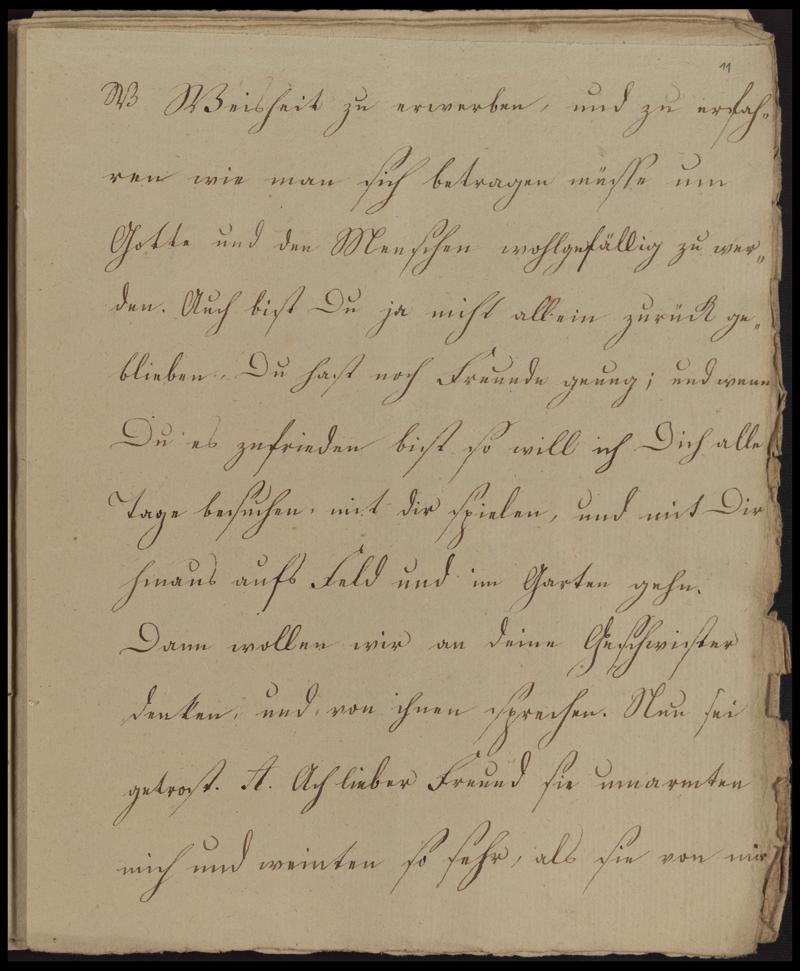 11
W Weisheit zu erwerben, und zu erfah-
ren wie man sich betragen müsse um
Gotte und den Menschen wohlgefällig zu wer„
den. Auch bist Du ja nicht allein zurück ge„
blieben. Du hast noch Freunde genug; und wenn
Du es zufrieden bist so will ich Dich alle
Tage besuchen, mit dir spielen, und mit Dir
hinaus aufs Feld und im Garten gehn.
Dann wollen wir an deine Geschwister
denken, und von ihnen sprechen. Nun sei
getrost. A. Ach lieber Freund sie umarmten
mich und weinten so sehr, als sie von mir